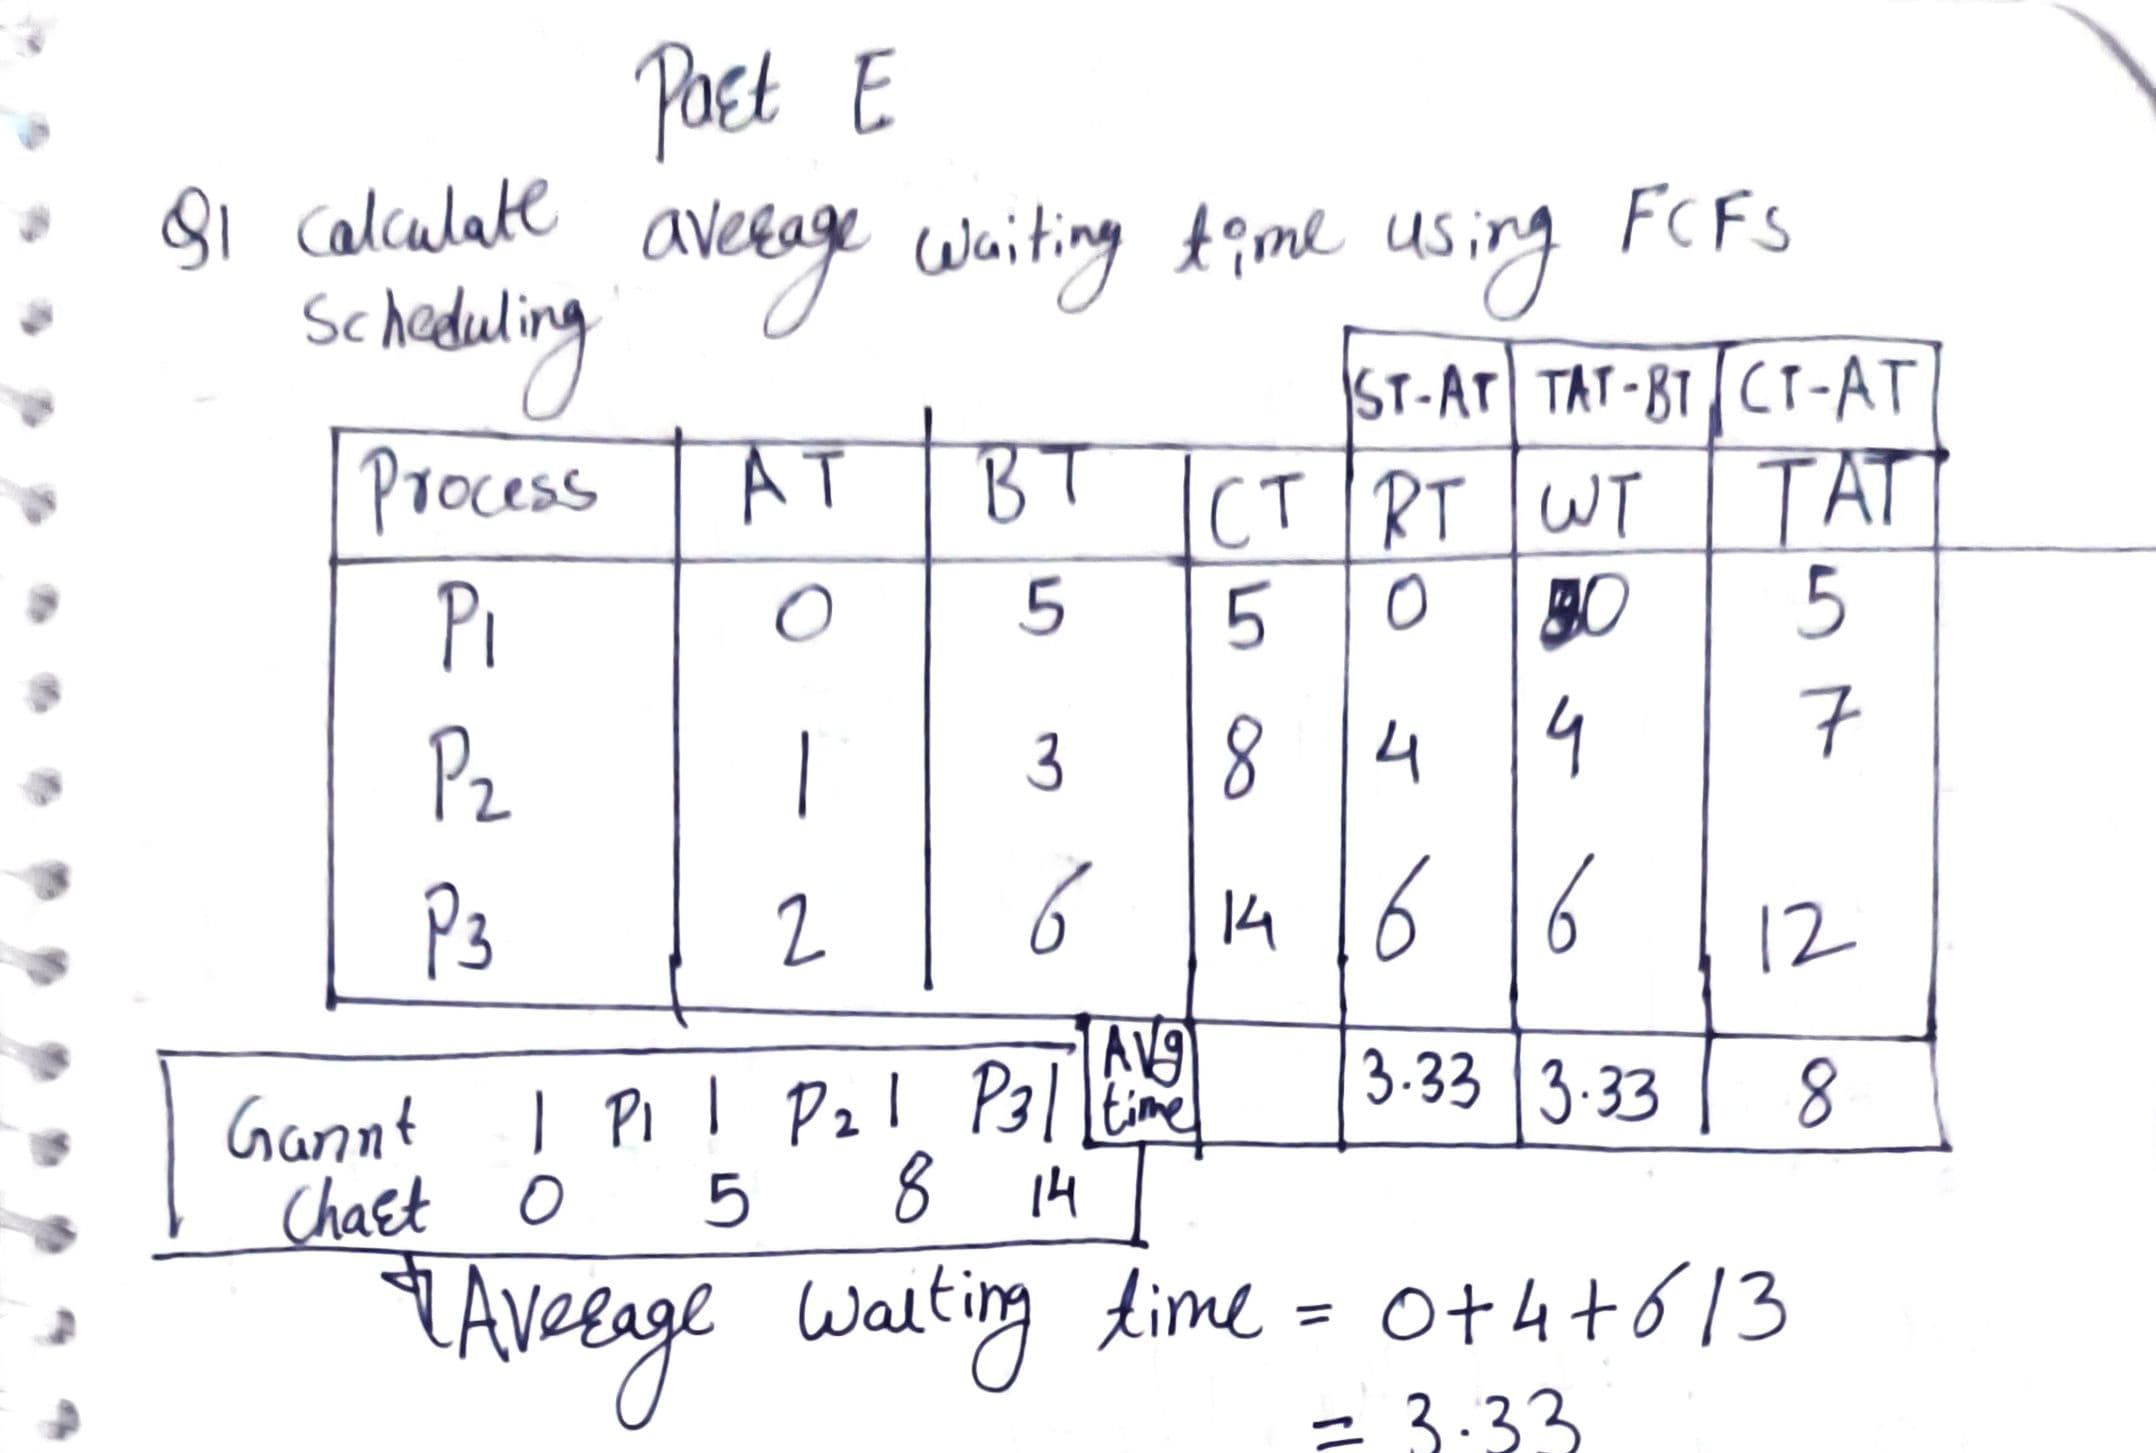 Part E
Q1 Calculate average waiting time using FCFS
Scheduling
ST-AT TAT-BT CT-AT
Process AT BT CT RT WT TAT
P1 0 5 5 0 0 5
P2 1 3 8 4 4 7
P3 2 6 14 6 6 12
Avg time 3.33 3.33 8
Gannt | P1 | P2 | P3 |
Chart 0 5 8 14
Average Waiting time = 0+4+6/3
= 3.33